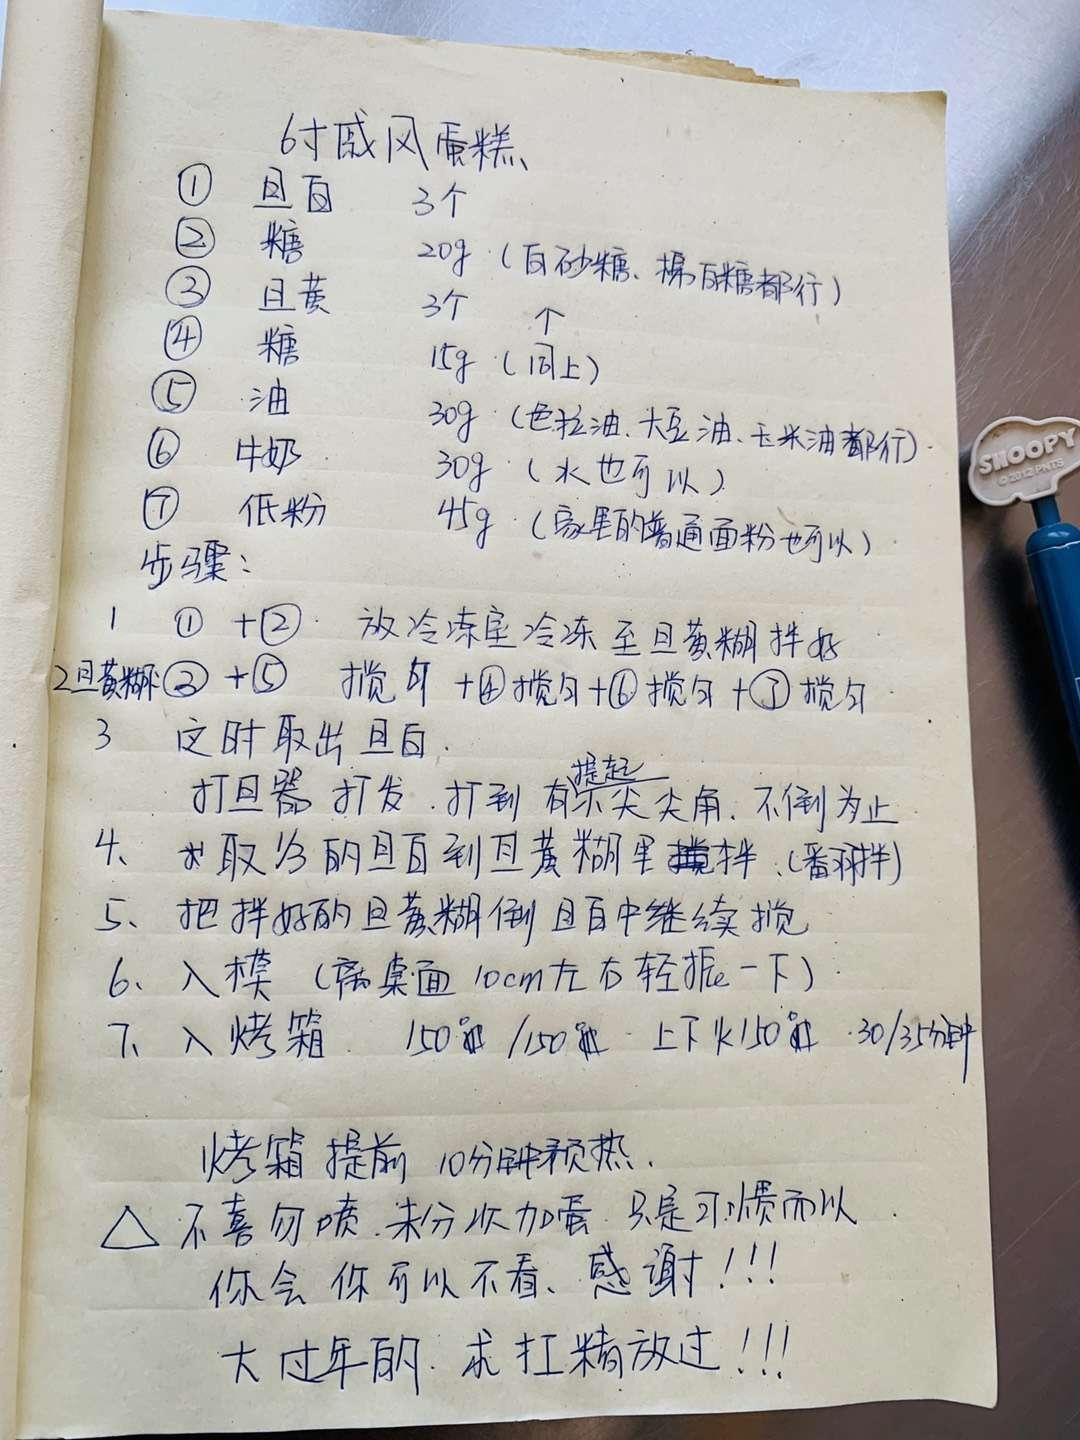 6寸戚风蛋糕
① 旦白 3个
② 糖 20g (白砂糖、棉白糖都行)
③ 旦黄 3个 ↑
④ 糖 15g (同上)
⑤ 油 30g (色拉油、大豆油、玉米油都行)
⑥ 牛奶 30g (水也可以)
⑦ 低粉 45g (家里的普通面粉也可以)
步骤:
1 ①+② 放冷冻室冷冻至旦黄糊拌好
2旦黄糊 ③+⑤ 搅匀+④搅匀+⑥搅匀+⑦搅匀
3 定时取出旦白.
提起
打旦器 打发.打到有小尖尖角.不倒为止
4、取1/3的旦白到旦黄糊里拌.(番羽拌)
5、把拌好的旦黄糊倒旦白中继续搅
6、入模 (离桌面10cm左右轻振一下)
7、入烤箱 150℃/150℃ 上下火150℃ 30/35分钟
烤箱提前10分钟预热.
△ 不喜勿喷.未分次加蛋.只是习惯而以.
你会你可以不看、感谢!!!
大过年的.求扛精放过!!!
SNOOPY
©2012 PNTS